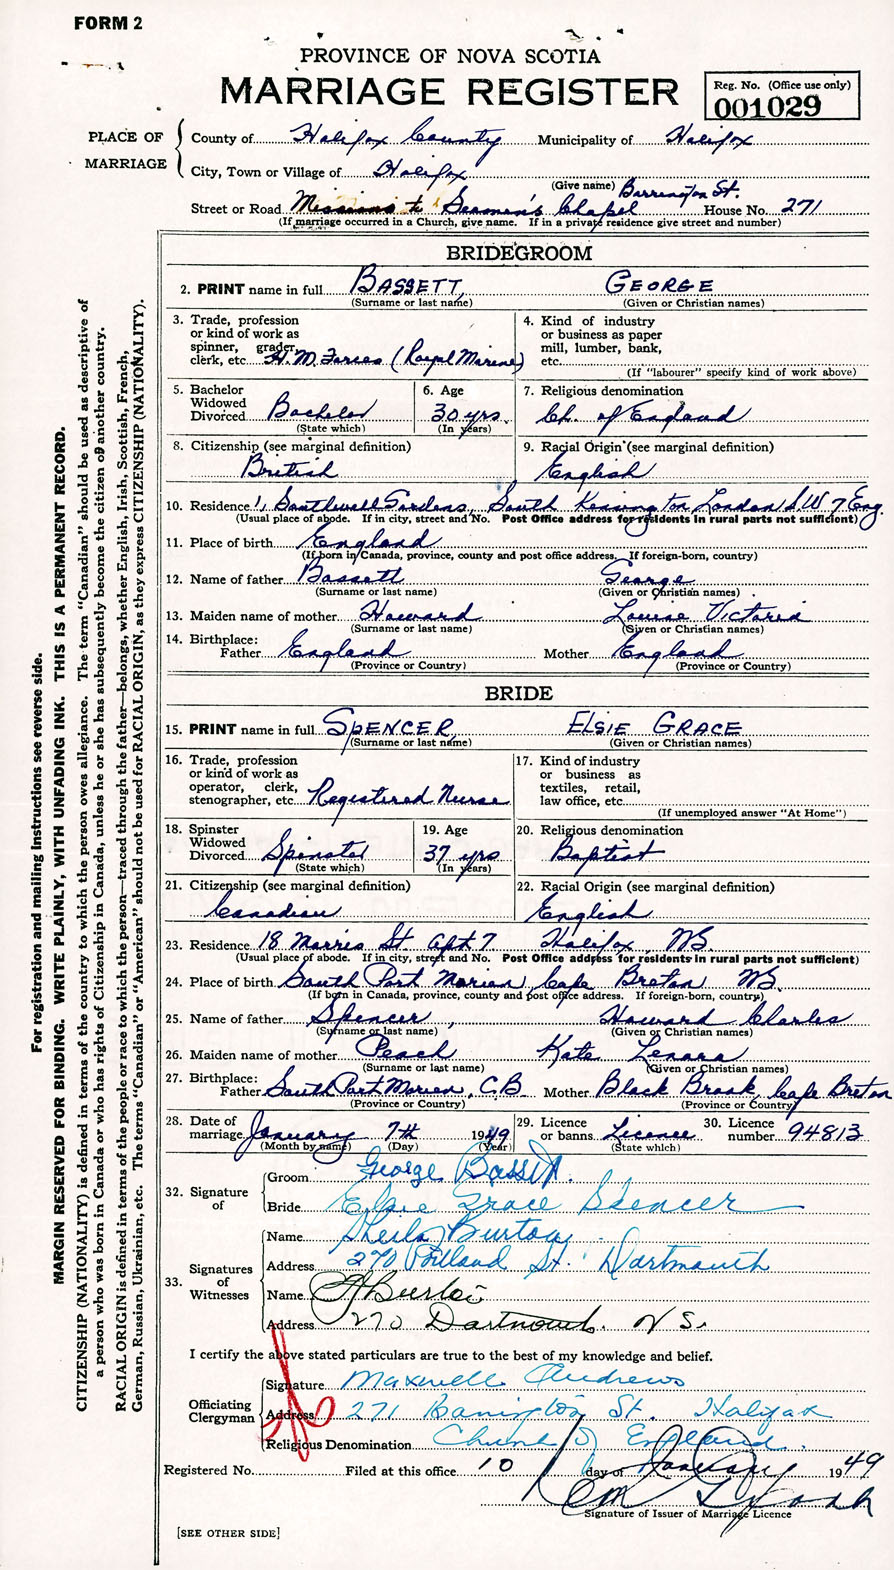 FORM 2
PROVINCE OF NOVA SCOTIA
MARRIAGE REGISTER
Reg. No. (Office use only)
001029
PLACE OF MARRIAGE
County of Halifax County Municipality of Halifax
City, Town or Village of Halifax
(Give name) Barrington St.
Street or Road Missions to Seamen's Chapel House No. 271
(If marriage occurred in a Church, give name. If in a private residence give street and number)
BRIDEGROOM
2. PRINT name in full BASSETT, GEORGE
(Surname or last name) (Given or Christian names)
3. Trade, profession or kind of work as spinner, grader, clerk, etc. H.M. Forces (Royal Marine)
4. Kind of industry or business as paper mill, lumber, bank, etc.
(If "labourer" specify kind of work above)
5. Bachelor Widowed Divorced Bachelor
(State which)
6. Age 30 yrs
(In years)
7. Religious denomination
Ch. of England
8. Citizenship (see marginal definition)
British
9. Racial Origin (see marginal definition)
English
10. Residence 1, Southwell Gardens, South Kensington London S.W 7 Eng.
(Usual place of abode. If in city, street and No. Post Office address for residents in rural parts not sufficient)
11. Place of birth England
(If born in Canada, province, county and post office address. If foreign-born, country)
12. Name of father Bassett George
(Surname or last name) (Given or Christian names)
13. Maiden name of mother Howard Louise Victoria
(Surname or last name) (Given or Christian names)
14. Birthplace:
Father England Mother England
(Province or Country) (Province or Country)
BRIDE
15. PRINT name in full SPENCER, ELSIE GRACE
(Surname or last name) (Given or Christian names)
16. Trade, profession or kind of work as operator, clerk, stenographer, etc. Registered Nurse
17. Kind of industry or business as textiles, retail, law office, etc.
(If unemployed answer "At Home")
18. Spinster Widowed Divorced Spinster
(State which)
19. Age 37 yrs
(In years)
20. Religious denomination
Baptist
21. Citizenship (see marginal definition)
Canadian
22. Racial Origin (see marginal definition)
English
23. Residence 18 Morris St Apt. 7 Halifax, NS.
(Usual place of abode. If in city, street and No. Post Office address for residents in rural parts not sufficient)
24. Place of birth South Port Morien, Cape Breton NS.
(If born in Canada, province, county and post office address. If foreign-born, country)
25. Name of father Spencer, Howard Charles
(Surname or last name) (Given or Christian names)
26. Maiden name of mother Peach Kate Lenora
(Surname or last name) (Given or Christian names)
27. Birthplace:
Father South Port Morien, C.B Mother Black Brook, Cape Breton
(Province or Country) (Province or Country)
28. Date of marriage January 7th 1949
(Month by name) (Day) (Year)
29. Licence or banns Licence
(State which)
30. Licence number 94813
32. Signature of
Groom George Bassett
Bride Elsie Grace Spencer
33. Signatures of Witnesses
Name Sheila Burton
Address 270 Portland St. Dartmouth
Name
Address 270 Dartmouth. N S.
I certify the above stated particulars are true to the best of my knowledge and belief.
Officiating Clergyman
Signature Maxwell Andrews
Address 271 Barrington St. Halifax
Religious Denomination Church of England.
Registered No. Filed at this office 10 day of January 1949
Signature of Issuer of Marriage Licence
[SEE OTHER SIDE]
For registration and mailing instructions see reverse side.
MARGIN RESERVED FOR BINDING. WRITE PLAINLY, WITH UNFADING INK. THIS IS A PERMANENT RECORD.
CITIZENSHIP (NATIONALITY) is defined in terms of the country to which the person owes allegiance. The term "Canadian" should be used as descriptive of
a person who was born in Canada or who has rights of Citizenship in Canada, unless he or she has subsequently become the citizen of another country.
RACIAL ORIGIN is defined in terms of the people or race to which the person—traced through the father—belongs, whether English, Irish, Scottish, French,
German, Russian, Ukrainian, etc. The terms "Canadian" or "American" should not be used for RACIAL ORIGIN, as they express CITIZENSHIP (NATIONALITY).